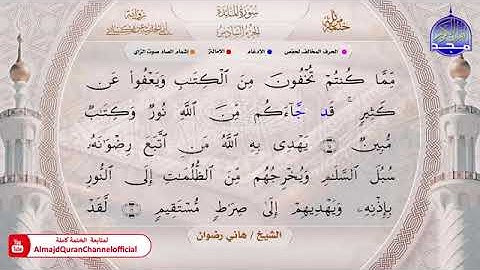 سورة المائدة
الجزء السادس
الحرف المخالف لحفص
الادغام
الامالة
إشمام الصاد صوت الزاي
مِّمَّا كُنتُمْ تُخْفُونَ مِنَ ٱلْكِتَٰبِ وَيَعْفُوا۟ عَن
كَثِيرٍ ۚ قَد جَّآءَكُم مِّنَ ٱللَّهِ نُورٌ وَكِتَٰبٌ
مُّبِينٌ ۝ يَهْدِى بِهِ ٱللَّهُ مَنِ ٱتَّبَعَ رِضْوَٰنَهُۥ
سُبُلَ ٱلسَّلَٰمِ وَيُخْرِجُهُم مِّنَ ٱلظُّلُمَٰتِ إِلَى ٱلنُّورِ
بِإِذْنِهِۦ وَيَهْدِيهِمْ إِلَىٰ صِرَٰطٍ مُّسْتَقِيمٍ ۝ لَّقَدْ
الشيخ / هاني رضوان
لمتابعة الختمة كاملة
AlmajdQuranChannelofficial